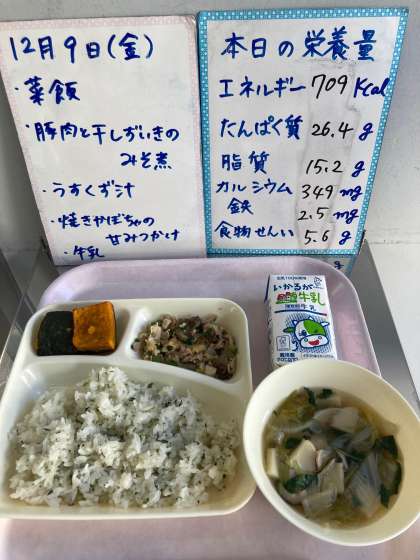 12月9日(金)
・菜飯
・豚肉と干しずいきの
みそ煮
・うすくず汁
・焼きかぼちゃの
甘みつかけ
・牛乳
本日の栄養量
エネルギー 709 Kcal
たんぱく質 26.4 g
脂質 15.2 g
カルシウム 349 mg
鉄 2.5 mg
食物せんい 5.6 g
g
いかるが
牛乳